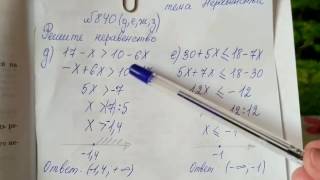 тема Неравенства
№840 (д, е, ж, з)
Решите неравенство
д) 17 - x > 10 - 6x
-x + 6x > 10
5x > -7
x > -7 : 5
x > -1,4
-1,4
Ответ: (-1,4; +∞)
е) 30 + 5x ≤ 18 - 7x
5x + 7x ≤ 18 - 30
12x ≤ -12
12:12
x ≤ -1
-1
Ответ (-∞; -1)